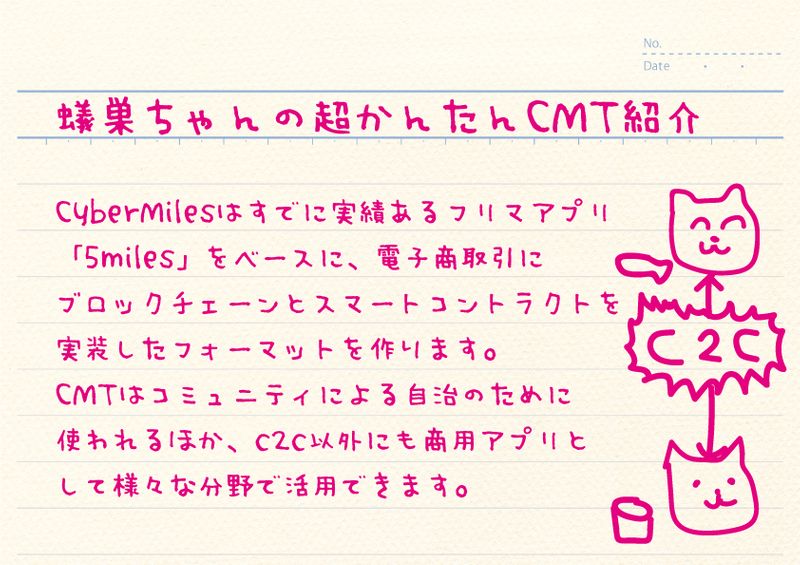 No.
Date ・ ・
蟻巣ちゃんの超かんたんCMT紹介
CyberMilesはすでに実績あるフリマアプリ
「5miles」をベースに、電子商取引に
ブロックチェーンとスマートコントラクトを
実装したフォーマットを作ります。
CMTはコミュニティによる自治のために
使われるほか、C2C以外にも商用アプリと
して様々な分野で活用できます。
C2C